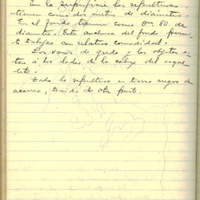 En la superficie las sepulturas
tienen como dos metros de diámetro.
En el fondo tienen como 0m 80 de
diámetro. Esta anchura del fondo permi-
te trabajar con relativa comodidad.
Los vasos de greda y los objetos es-
tán a los lados de la cabeza del esque-
leto.
Cada sepultura se tiene negra de
de otra parte.